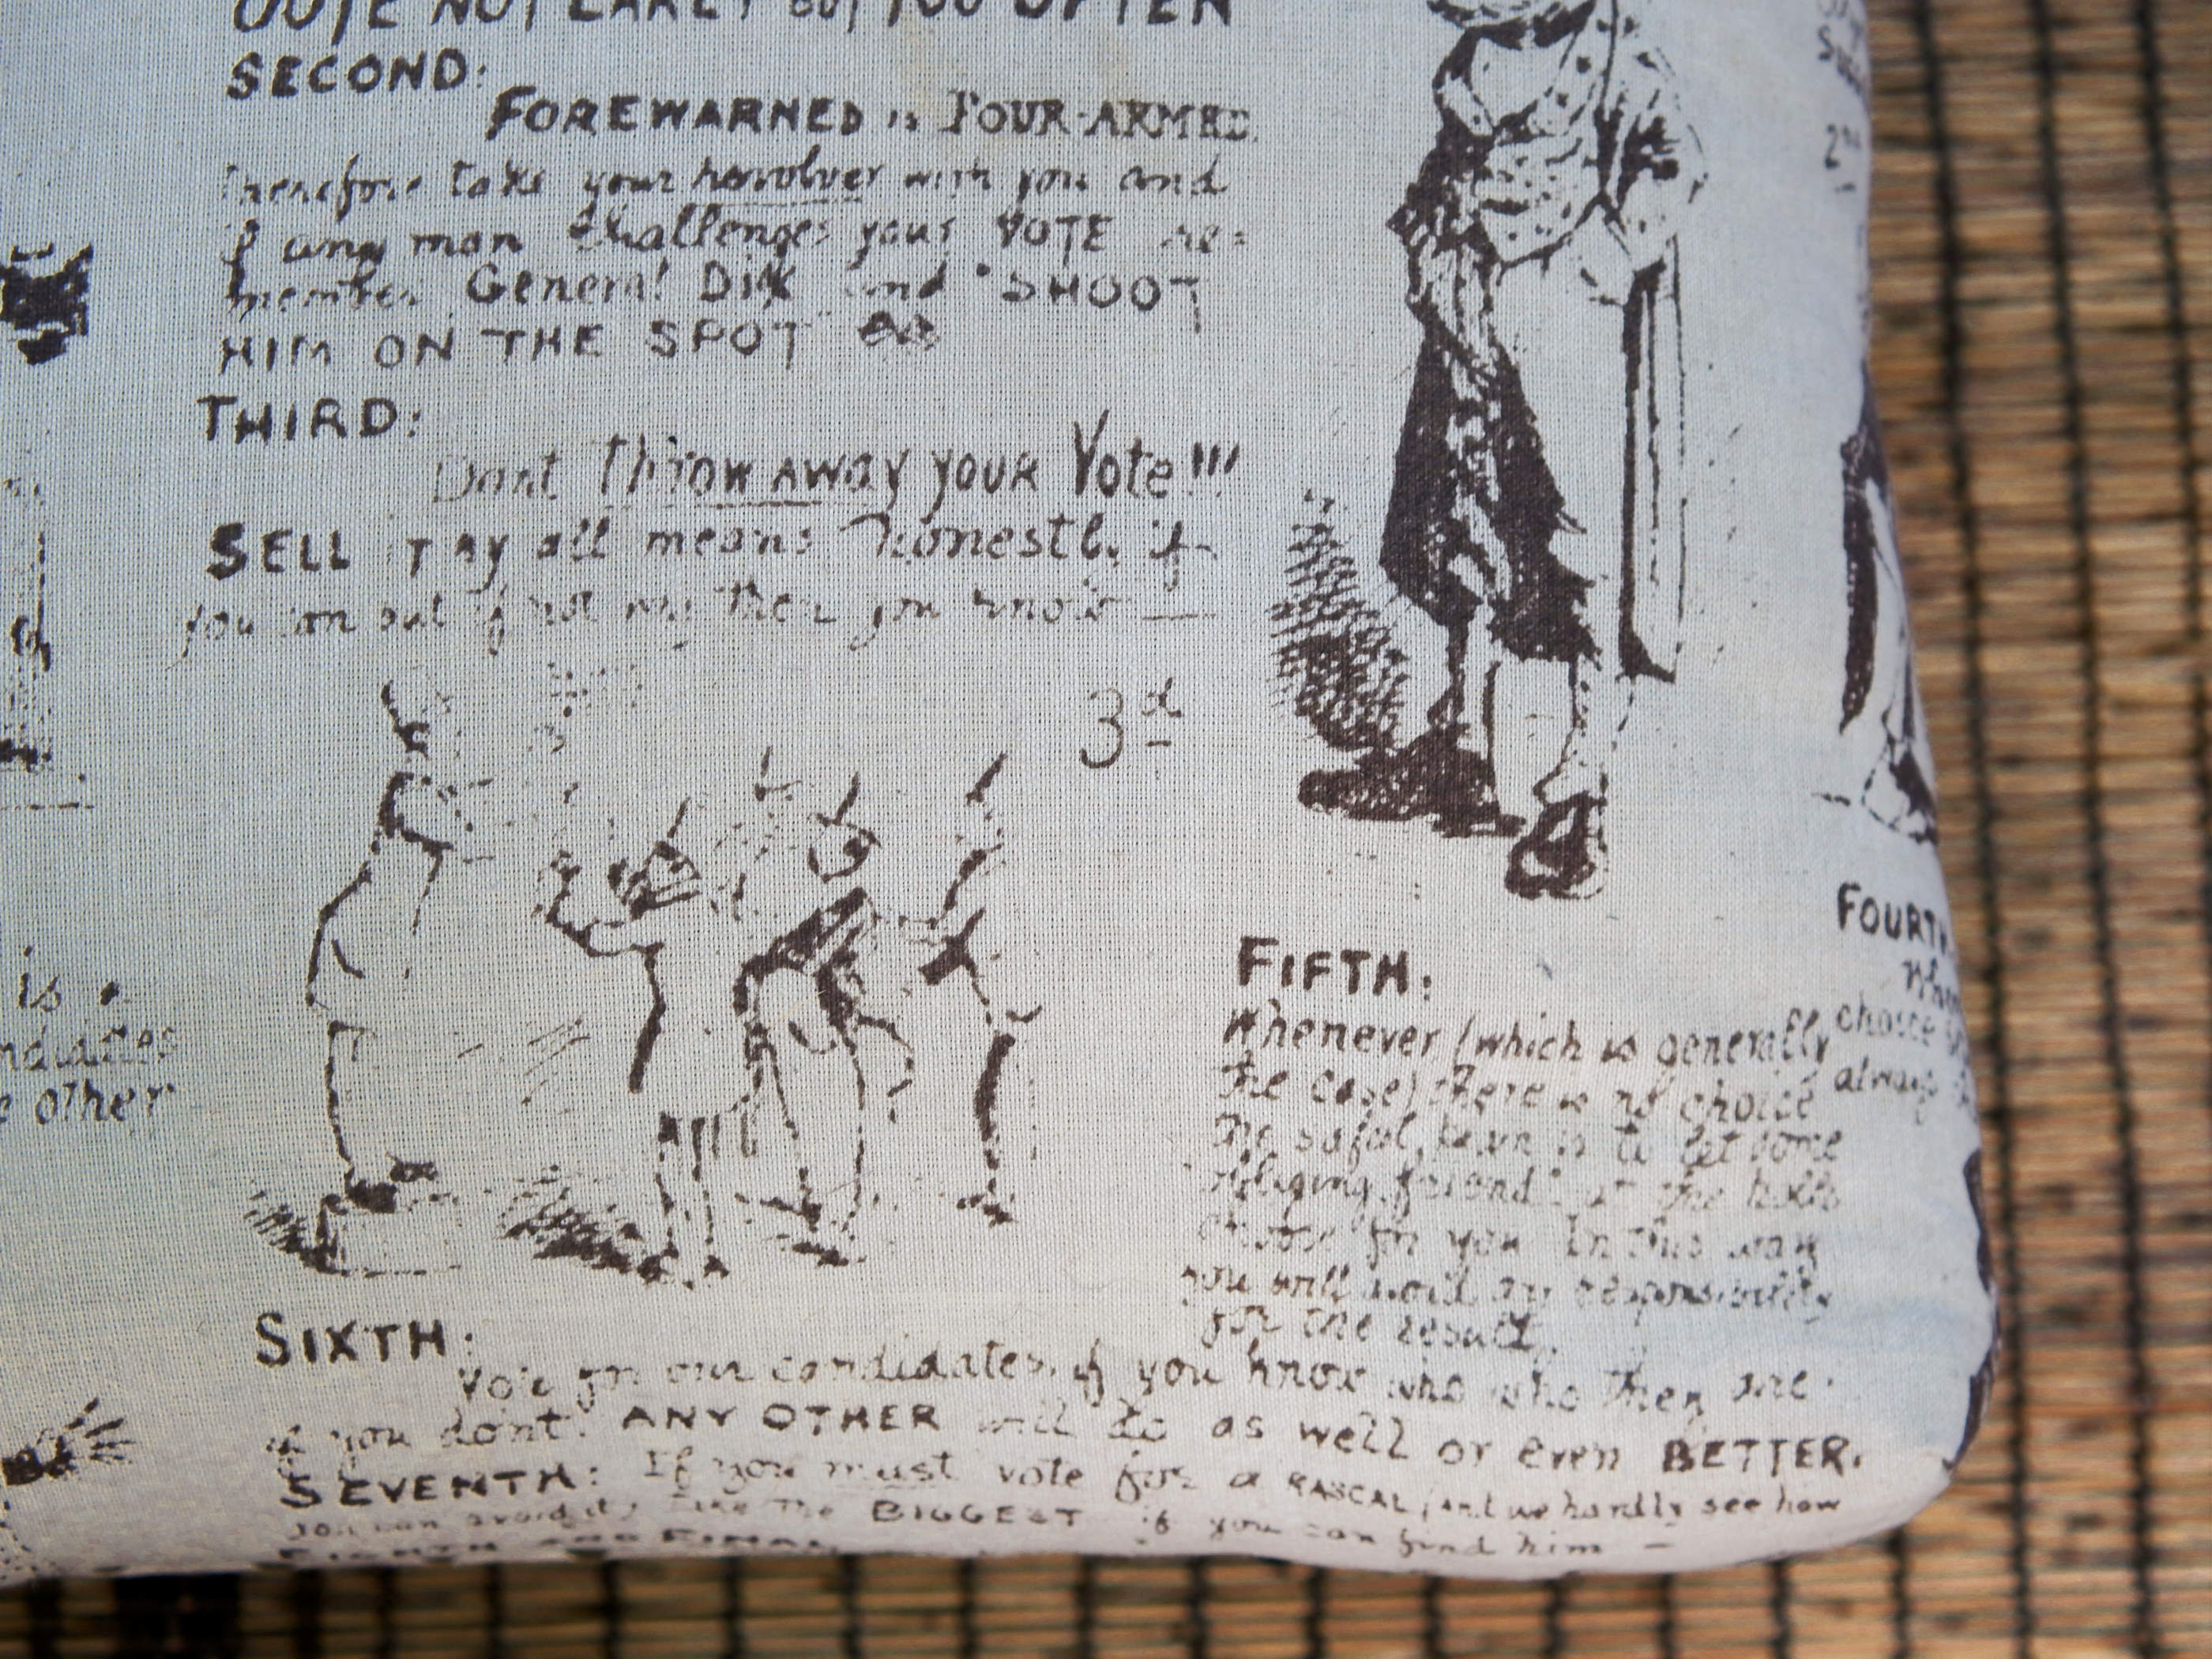 VOTE NOT EARLY but TOO OFTEN
SECOND:
FOREWARNED is FOUR-ARMED.
Therefore take your revolver with you and
if any man challenges your VOTE re=
member General DIX and "SHOOT
HIM ON THE SPOT"
THIRD:
Dont throw AWAY YOUR Vote!!!
SELL IT BY all means honestly if
you can but if not why then you know —
3d
is a
other
FIFTH:
Whenever (which is generally
the case) there is no choice
the safest plan is to let some
obliging friend at the
choose for you In this way
you will avoid any responsibility
for the result.
FOURTH
choice
always
2nd
SIXTH:
Vote for our candidates, if you know who who they are.
if you dont. ANY OTHER will do as well or even BETTER.
SEVENTH: If you must vote for a RASCAL (and we hardly see how
you can avoid it) take the BIGGEST if you can find him —
EIGHTH AND FINAL